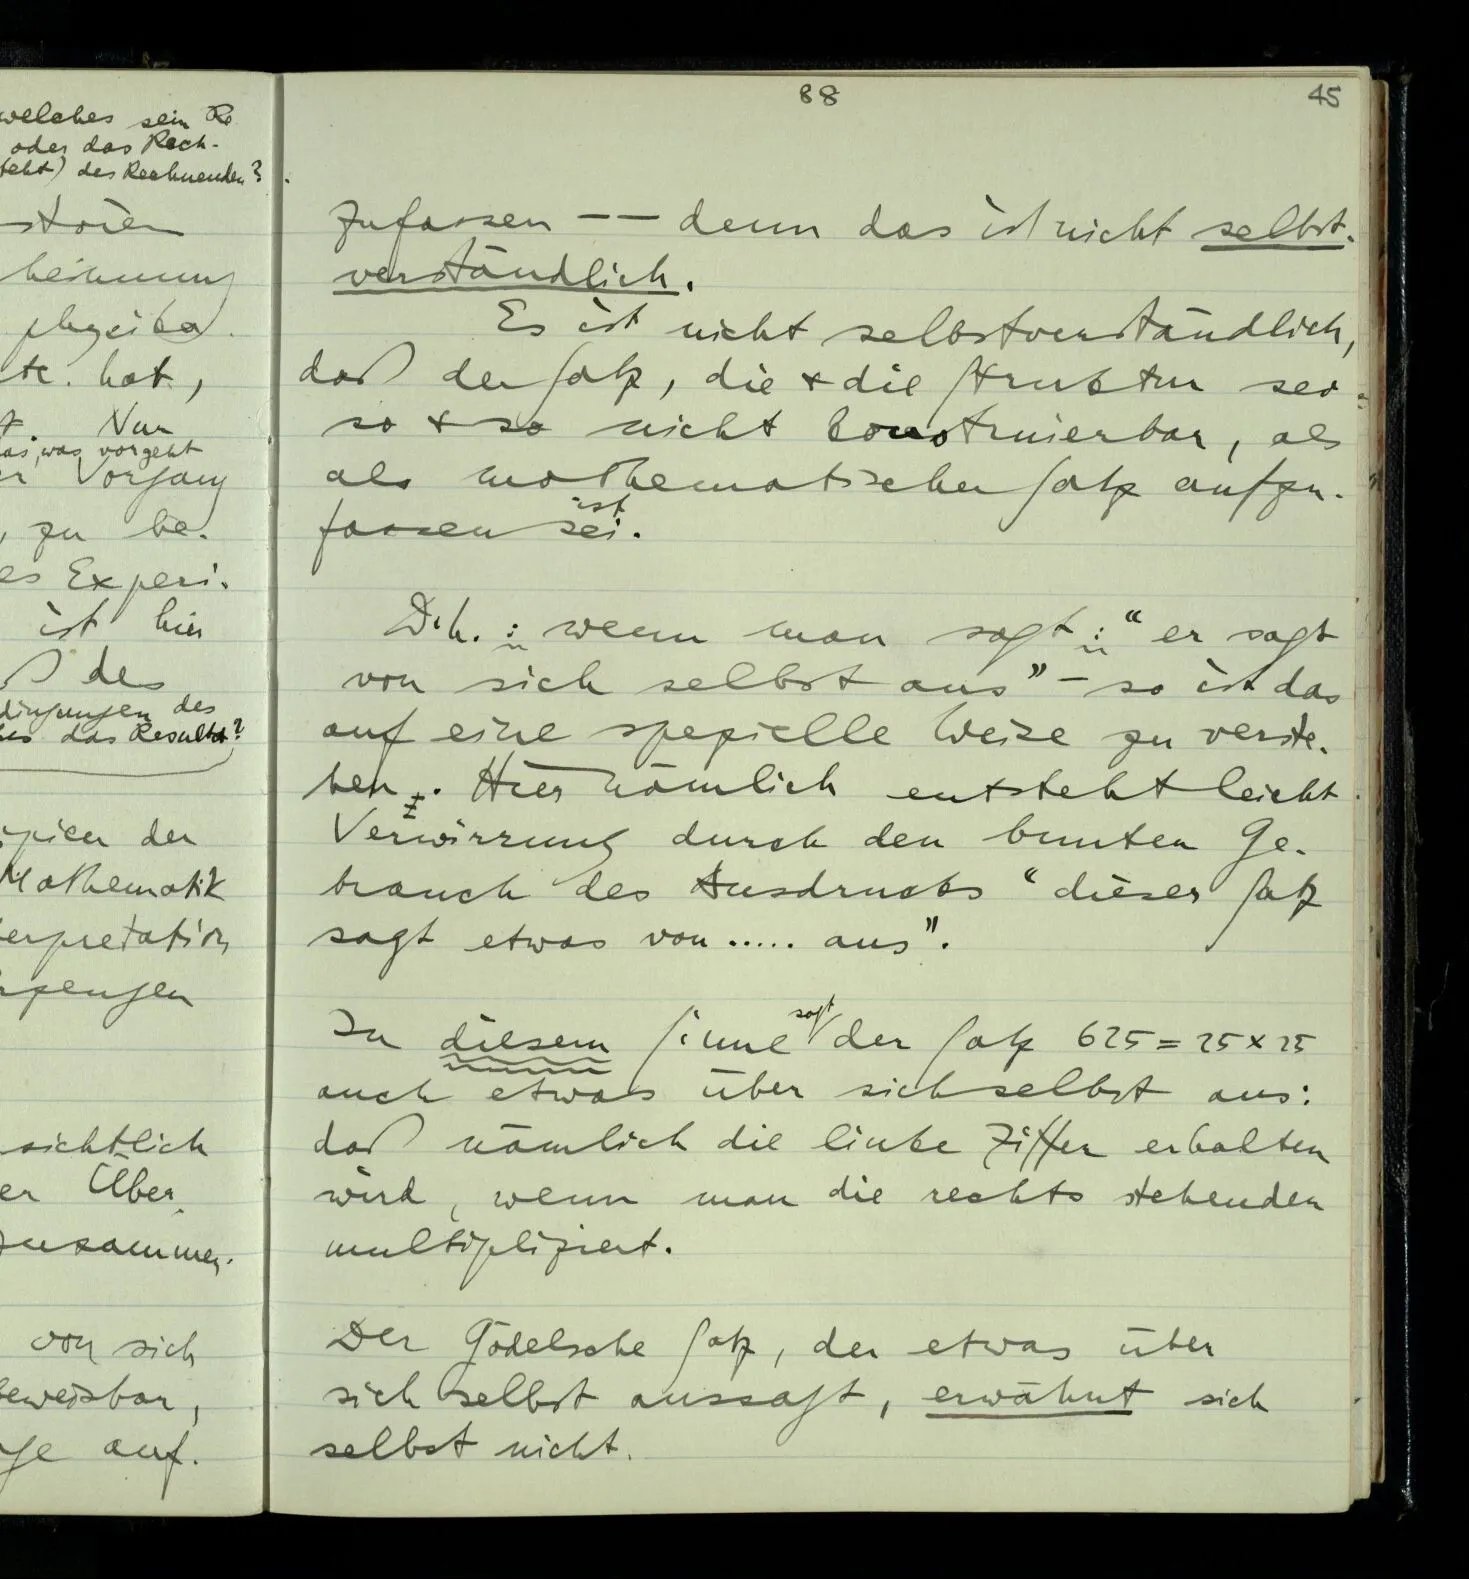 welches sein Re
oder das Rech-
steht) des Rechnenden?
heinung
physika
etc. hat,
Nur
das, was vorgeht
er Vorgang
, zu be-
es Experi-
ist hier
des
dingungen des
das Resultat?
der
Mathematik
erpretation
sichtlich
er Über
zusammen-
von sich
beweisbar,
ge auf.
88 45
zufassen –– denn das ist nicht selbst-
verständlich.
Es ist nicht selbstverständlich,
daß der Satz, die & die Struktur sei
so & so nicht konstruierbar, als
als mathematischer Satz aufzu-
ist
fassen sei.
D.h.: wenn man sagt: “er sagt
von sich selbst aus” – so ist das
auf eine spezielle Weise zu verste-
hen. Hier nämlich entsteht leicht
Verwirrung durch den bunten Ge-
brauch des Ausdrucks “dieser Satz
sagt etwas von ..... aus”.
sagt
In diesem Sinne der Satz 625 = 25 × 25
auch etwas über sich selbst aus:
daß nämlich die linke Ziffer erhalten
wird, wenn man die rechts stehenden
multipliziert.
Der Gödelsche Satz, der etwas über
sich selbst aussagt, erwähnt sich
selbst nicht.